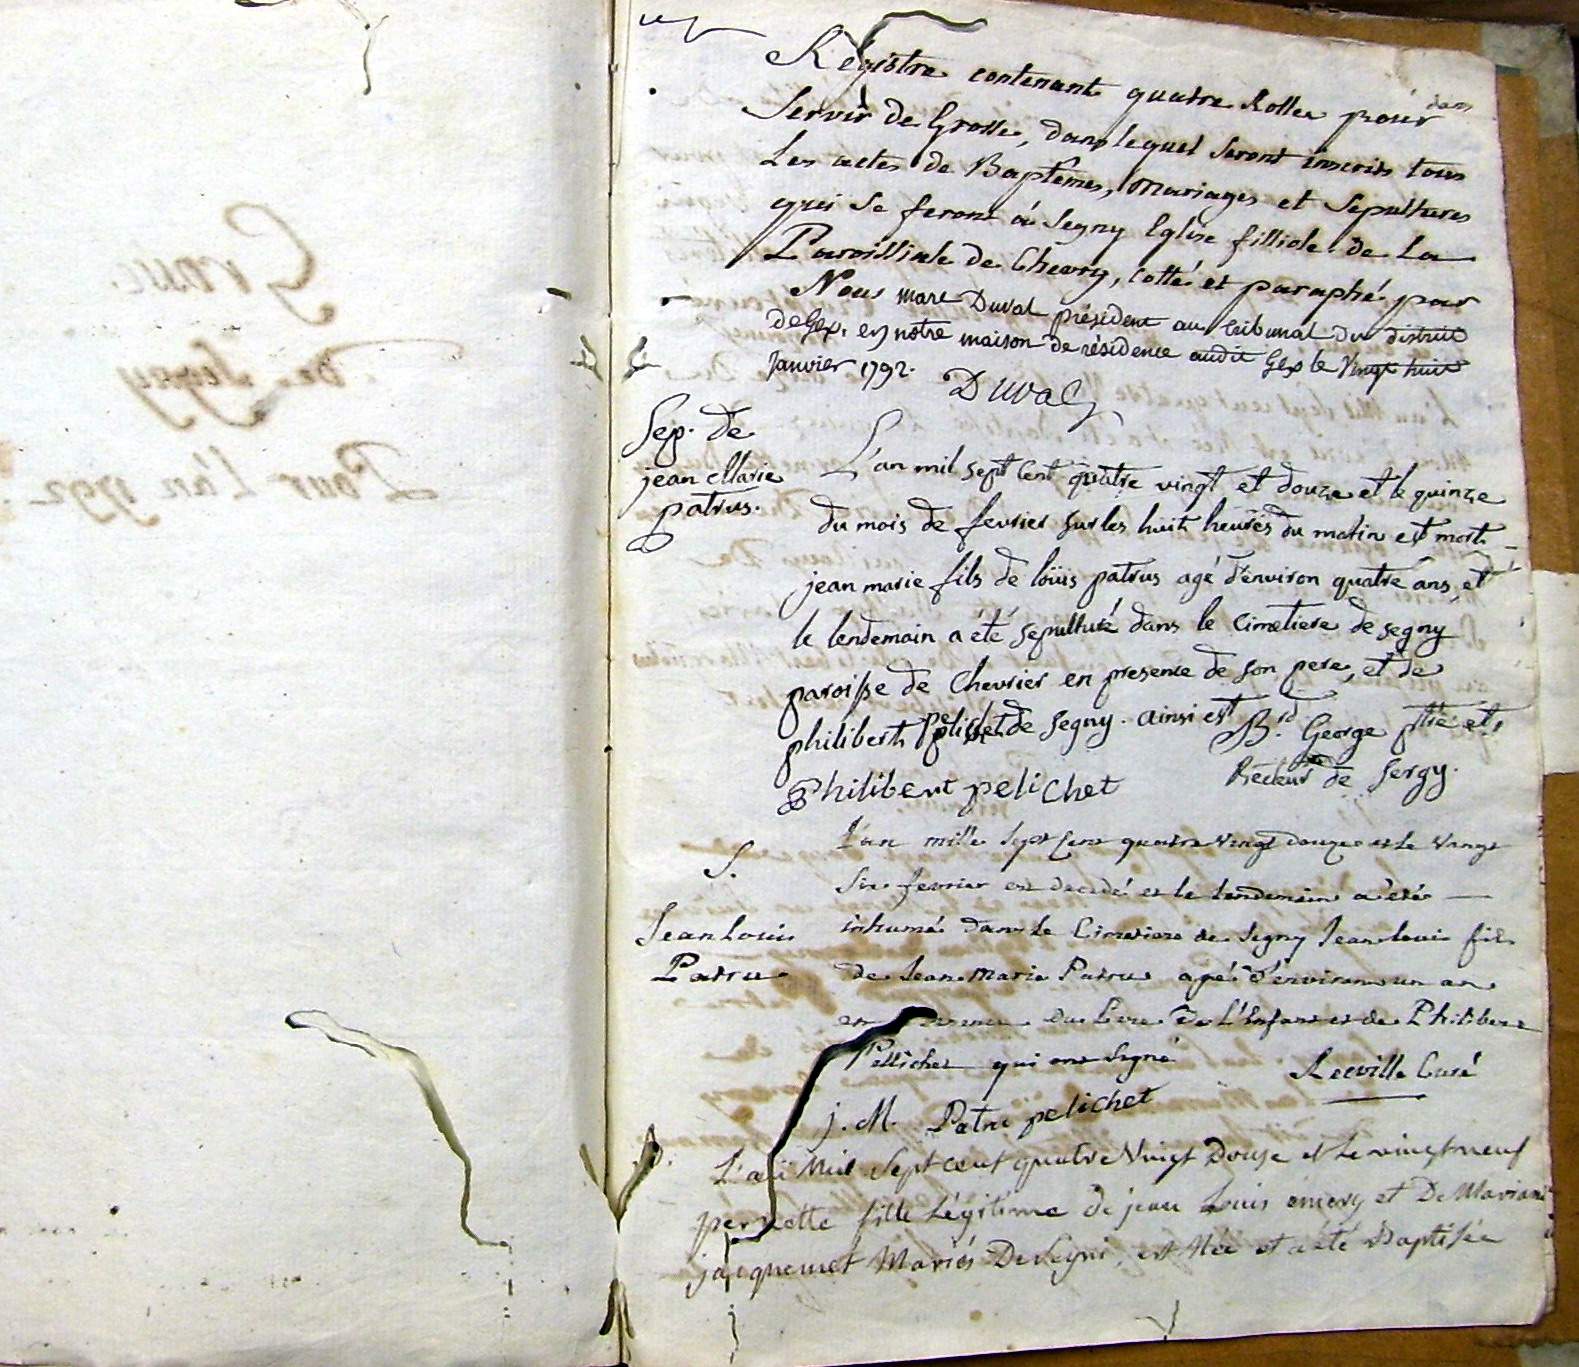 Grosse
De Segny
Pour L'an 1792.
Régistre contenant quatre Rolles pour dans
Servir de Grosse, dans lequel seront inscrits tous
Les actes de Baptêmes, Mariages et Sepultures
qui se feront à Segny Eglise filliale de La
Paroissiale de Chevry, cotté et paraphé par
Nous marc Duval président au tribunal du district
de Gex, en notre maison de résidence audit Gex le Vingt huit
Janvier 1792.
Duval
Sep. de
jean Marie
patrus.
L'an mil sept cent quatre vingt et douze et le quinze
du mois de fevrier sur les huit heures du matin est mort
jean marie fils de loüis patrus agé d'environ quatre ans, et
le lendemain a été sepulturé dans le cimetiere de segny
paroisse de Chevrier en presence de son pere, et de
philibert pelichet de segny. ainsi est Brd. George ptre et
Recteur de Sergy.
Philibert pelichet
S.
Jean Louis
Patru
L'an mille sept cent quatre vingt douze et le vingt
six fevrier est decedé et le lendemain a été
inhumé dans le Cimetiere de Segny Jean louis fils
de Jean Marie Patru agé d'environ un an
en du Pere de L'Enfant et de Philibert
Pellichet qui ont signé
Curé
j. M. Patru pelichet
L'an Mil Sept cent quatre Vingt Douze et le vingt neuf
pernette fille Légitime de jean Louis emery et De Mariane
jacquemet Mariés De Segni, est Née et a été Baptisée